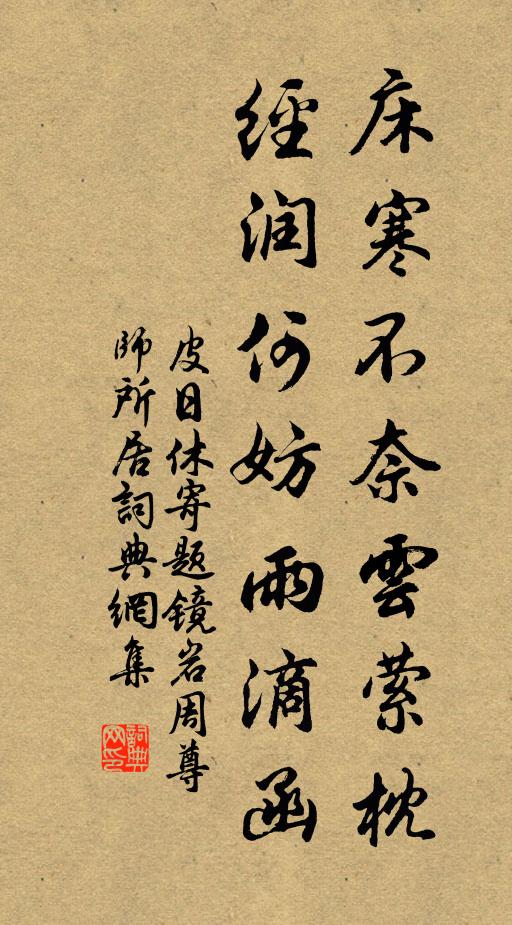 床寒不奈雲縈枕
經润何妨雨滴函
皮日休寄题镜岩周尊
師所居詞典網集
詞典網印